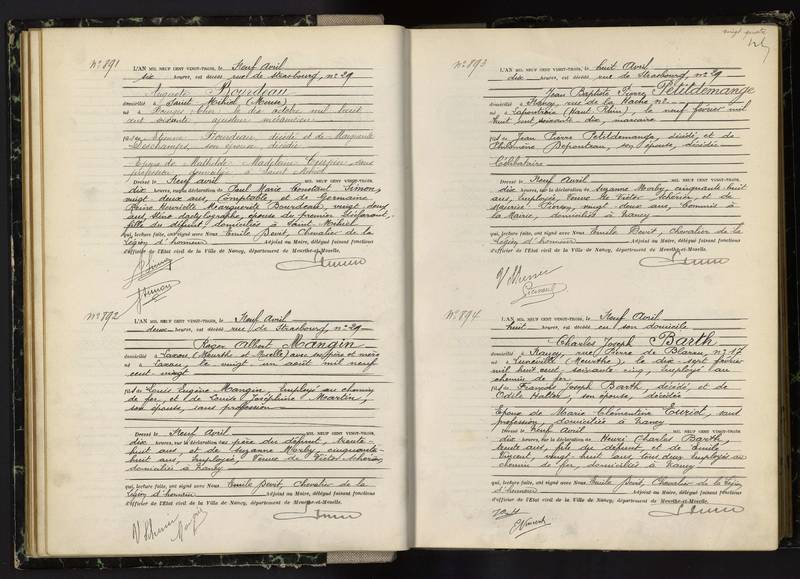 N° 891
L'AN MIL NEUF CENT VINGT-TROIS, le Neuf Avril
six heures, est décédé rue de Strasbourg, n° 29
Auguste Bourdeau
domicilié à Saint Mihiel (Meuse)
né à Bourges, Cher, le dix octobre mil huit
cent soixante, ajusteur mécanicien
fils de Etienne Bourdeau, décédé et de Marguerite
Deschamps, son épouse, décédée
Epoux de Mathilde Madeleine sans
profession, domiciliée à Saint Mihiel
Dressé le Neuf avril MIL NEUF CENT VINGT-TROIS,
dix heures, sur la déclaration de Paul Marie Constant Simon,
vingt deux ans, Comptable, et de Germaine
Reine Henriette Marguerite Bourdeau, vingt deux
ans, sténo dactylographe, épouse du premier déclarant,
fille du défunt, domiciliés à Saint Mihiel
qui, lecture faite, ont signé avec Nous Emile Devit, Chevalier de la
Légion d'honneur Adjoint au Maire, délégué faisant fonctions
d'officier de l'Etat civil de la Ville de Nancy, département de Meurthe-et-Moselle.
N° 892
L'AN MIL NEUF CENT VINGT-TROIS, le Neuf Avril
deux heures, est décédé rue de Strasbourg, n° 29
Roger Albert Mangin
domicilié à Laxou (Meurthe et Moselle) avec ses père et mère
né à Laxou, le vingt un août mil neuf
cent vingt
fils de Louis Eugène Mangin, employé au chemin
de fer, et de Louise Joséphine Mcartier,
son épouse, sans profession
Dressé le Neuf Avril MIL NEUF CENT VINGT-TROIS,
dix heures, sur la déclaration du père du défunt, trente-
huit ans, et de Suzanne Morby, cinquante-
huit ans, employée, Veuve de Victor Schérier
domiciliée à Nancy
qui, lecture faite, ont signé avec Nous Emile Devit, Chevalier de la
Légion d'honneur Adjoint au Maire, délégué faisant fonctions
d'officier de l'Etat civil de la Ville de Nancy, département de Meurthe-et-Moselle.
Mangin
N° 893
L'AN MIL NEUF CENT VINGT-TROIS, le huit Avril
dix heures, est décédé rue de Strasbourg, n° 29
Jean Baptiste Pierre Petitdemange
domicilié à Nancy, rue de la Hache n°
né à Lapoutroie (Haut Rhin), le neuf février mil
huit cent soixante-dix, mercière
fils de Jean Pierre Petitdemange, décédé, et de
Philomène Depoutcau, son épouse, décédée
Célibataire
Dressé le Neuf Avril MIL NEUF CENT VINGT-TROIS,
dix heures, sur la déclaration de Suzanne Morby, cinquante-huit
ans, employée, Veuve de Victor Schérier, et de
vingt deux ans, Commis à
la Mairie, domiciliés à Nancy
qui, lecture faite, ont signé avec Nous Emile Devit, Chevalier de la
Légion d'honneur Adjoint au Maire, délégué faisant fonctions
d'officier de l'Etat civil de la Ville de Nancy, département de Meurthe-et-Moselle.
N° 894
L'AN MIL NEUF CENT VINGT-TROIS, le Neuf Avril
huit heures, est décédé en son domicile
Charles Joseph Barth
domicilié à Nancy, rue Pierre de Blarru, n° 17
né à Lunéville (Meurthe), le dix-sept février
mil huit cent soixante cinq, employé au
chemin de fer
fils de François Joseph Barth, décédé, et de
Odile Hatter, son épouse, décédée
Epoux de Marie Clémentine Euriol, sans
profession, domiciliée à Nancy
Dressé le Neuf Avril MIL NEUF CENT VINGT-TROIS,
dix heures, sur la déclaration de Henri Charles Barth,
trente ans, fils du défunt, et de Emile
vingt huit ans, tous deux employés au
chemin de fer, domiciliés à Nancy
qui, lecture faite, ont signé avec Nous Emile Devit, Chevalier de la Légion
d'honneur Adjoint au Maire, délégué faisant fonctions
d'officier de l'Etat civil de la Ville de Nancy, département de Meurthe-et-Moselle.